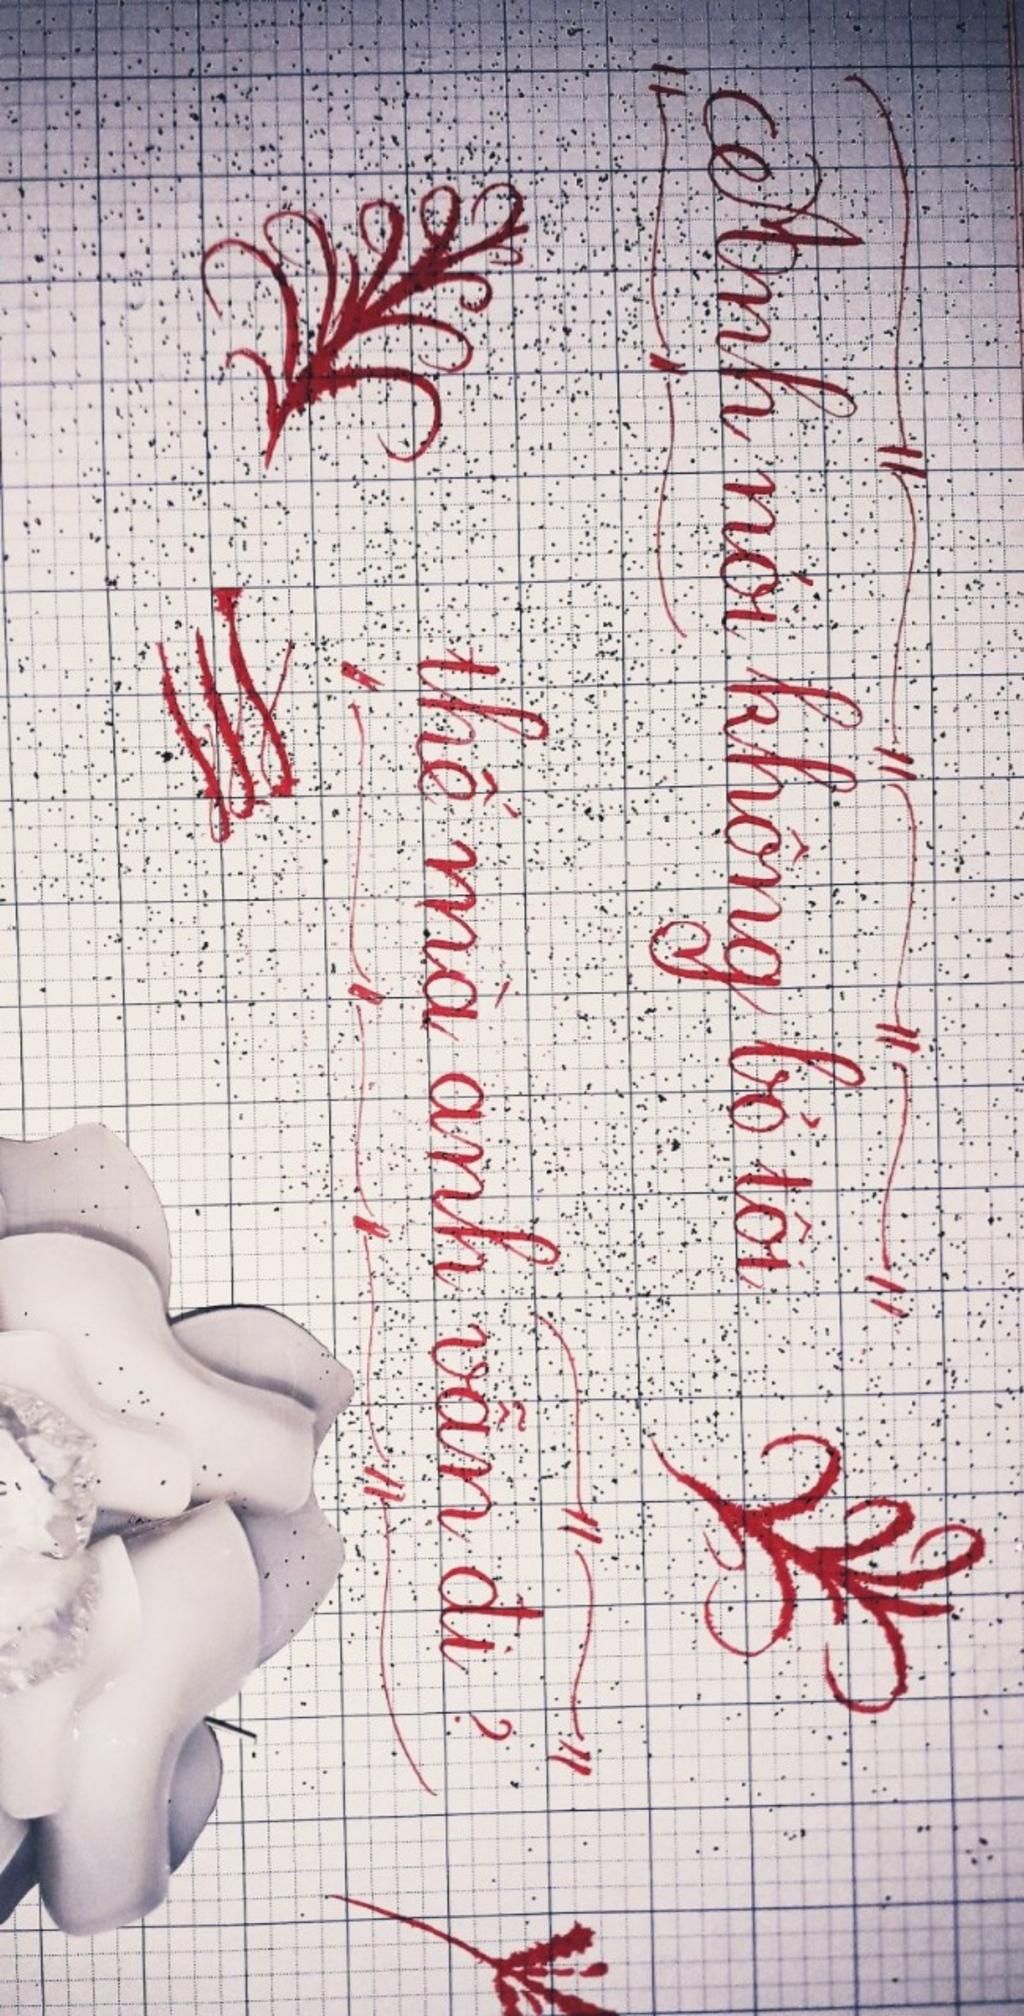 Anh nói không bỏ tôi
thế mà anh vẫn đi?